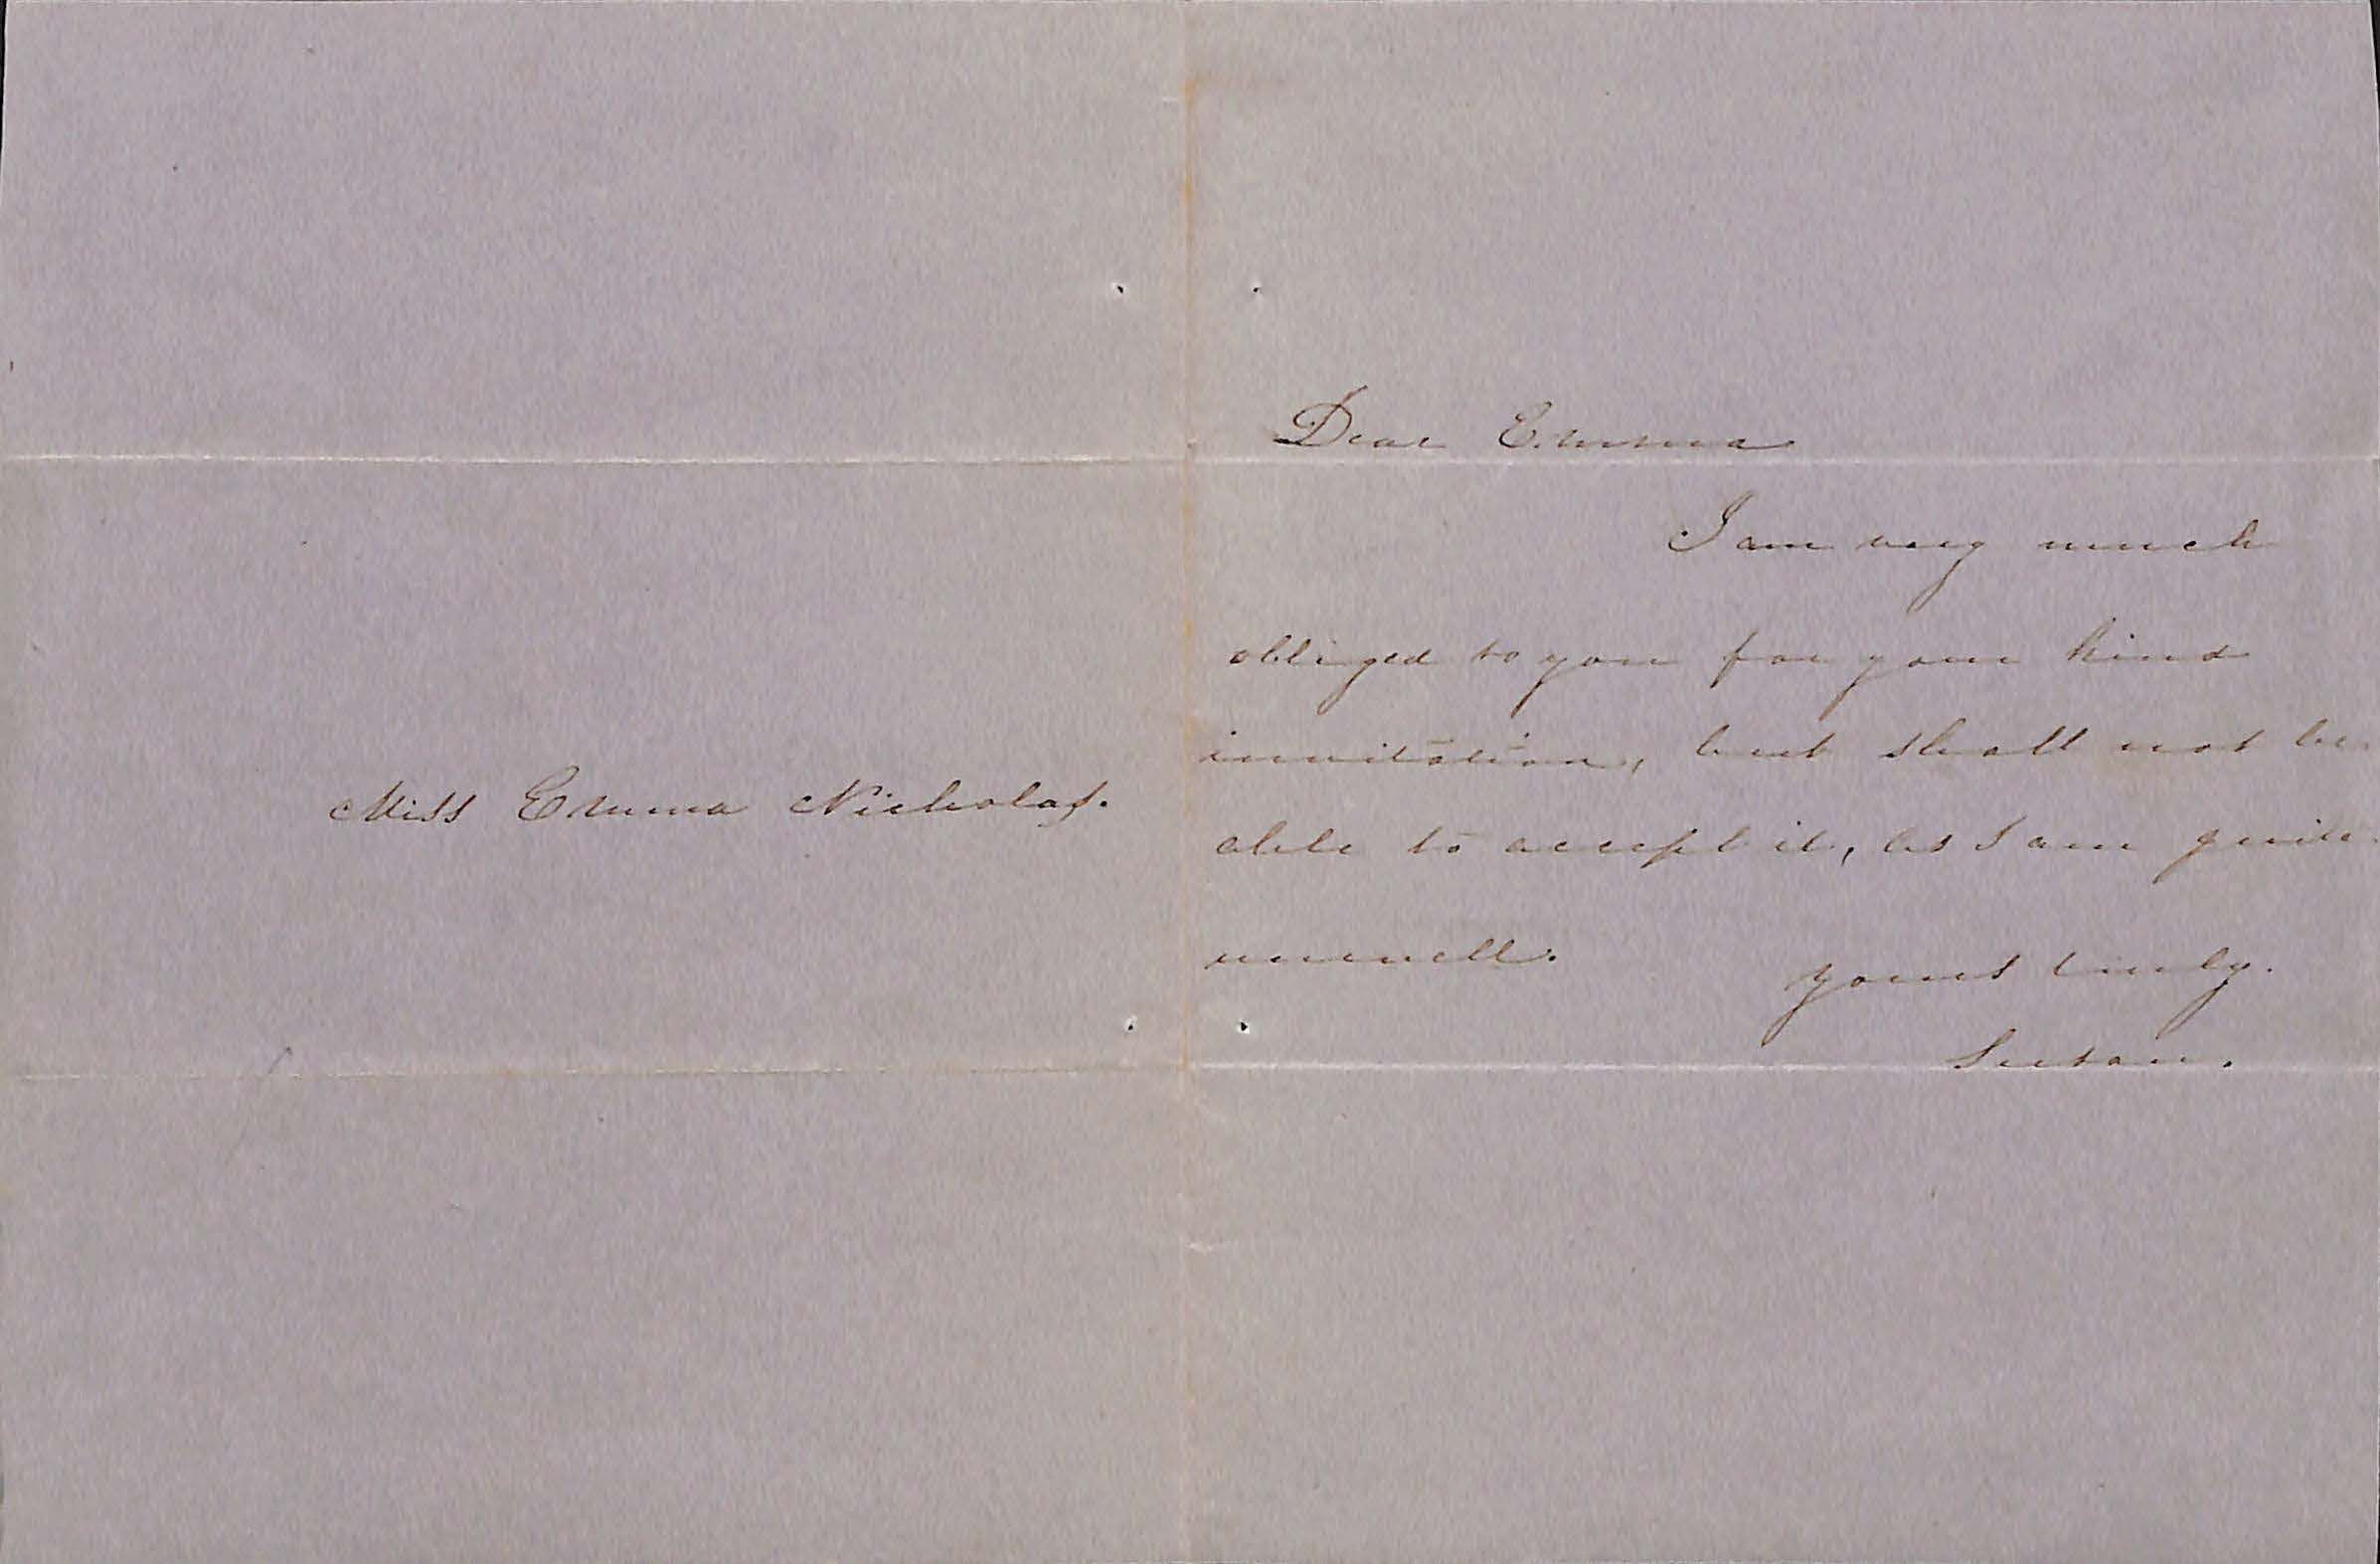 Miss Emma Nicholas.
Dear Emma
I am very much
obliged to you for your kind
invitation, but shall not be
able to accept it, as I am quite
unwell.
yours truly.
Susan.